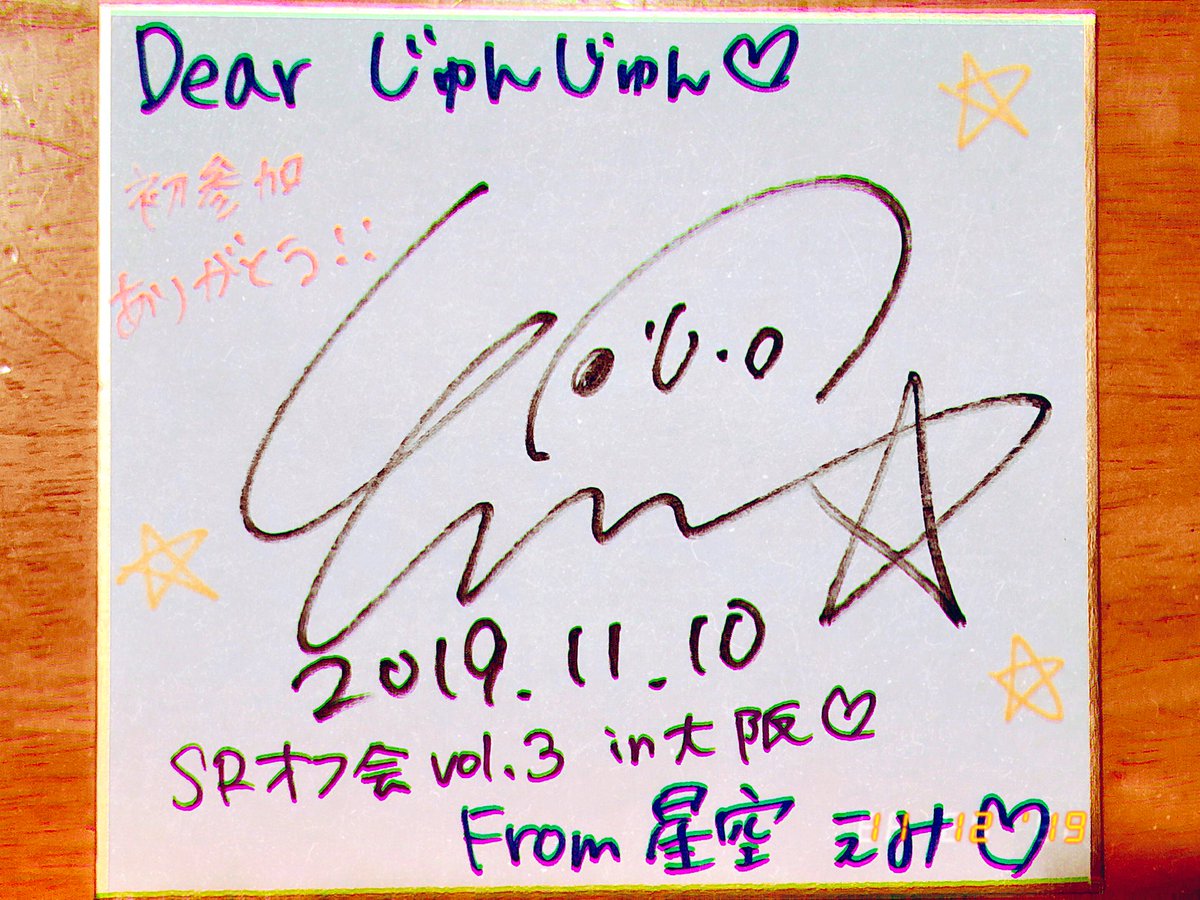 Dear じゅんじゅん♡
初参加
ありがとう!!
2019.11.10
SRオフ会 vol.3 in 大阪♡
From 星空 えみ♡
11 12 '19